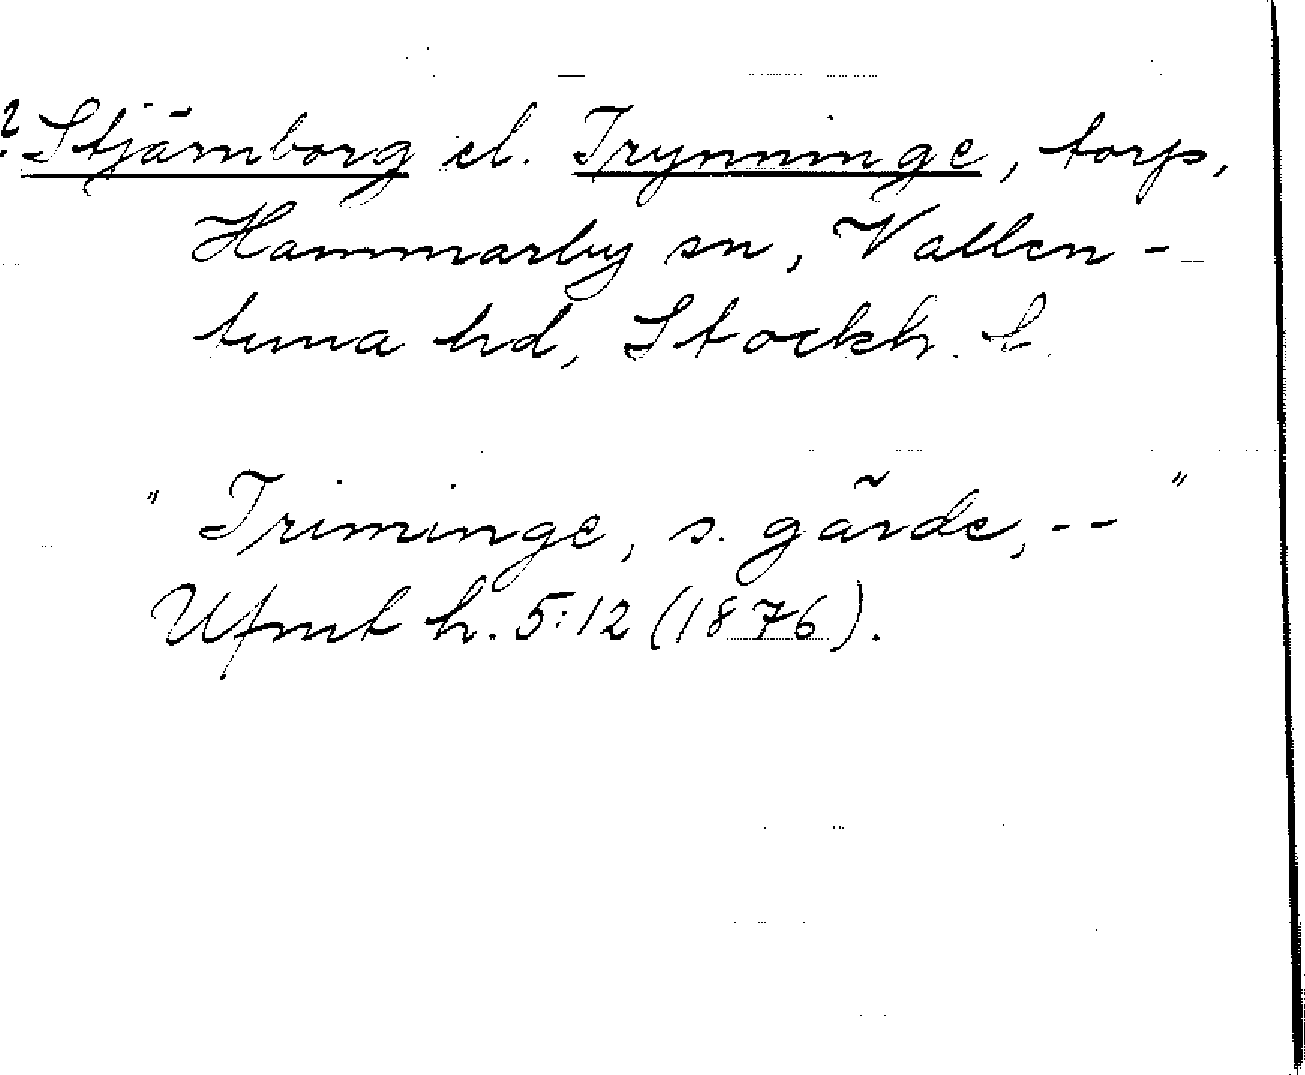 ? Stjärnborg el. Trynninge, torp,
Hammarby sn, Vallen-
tuna hd, Stockh. l.
"Triminge, s. gärde, -- "
Ufmt h. 5:12 (1876).